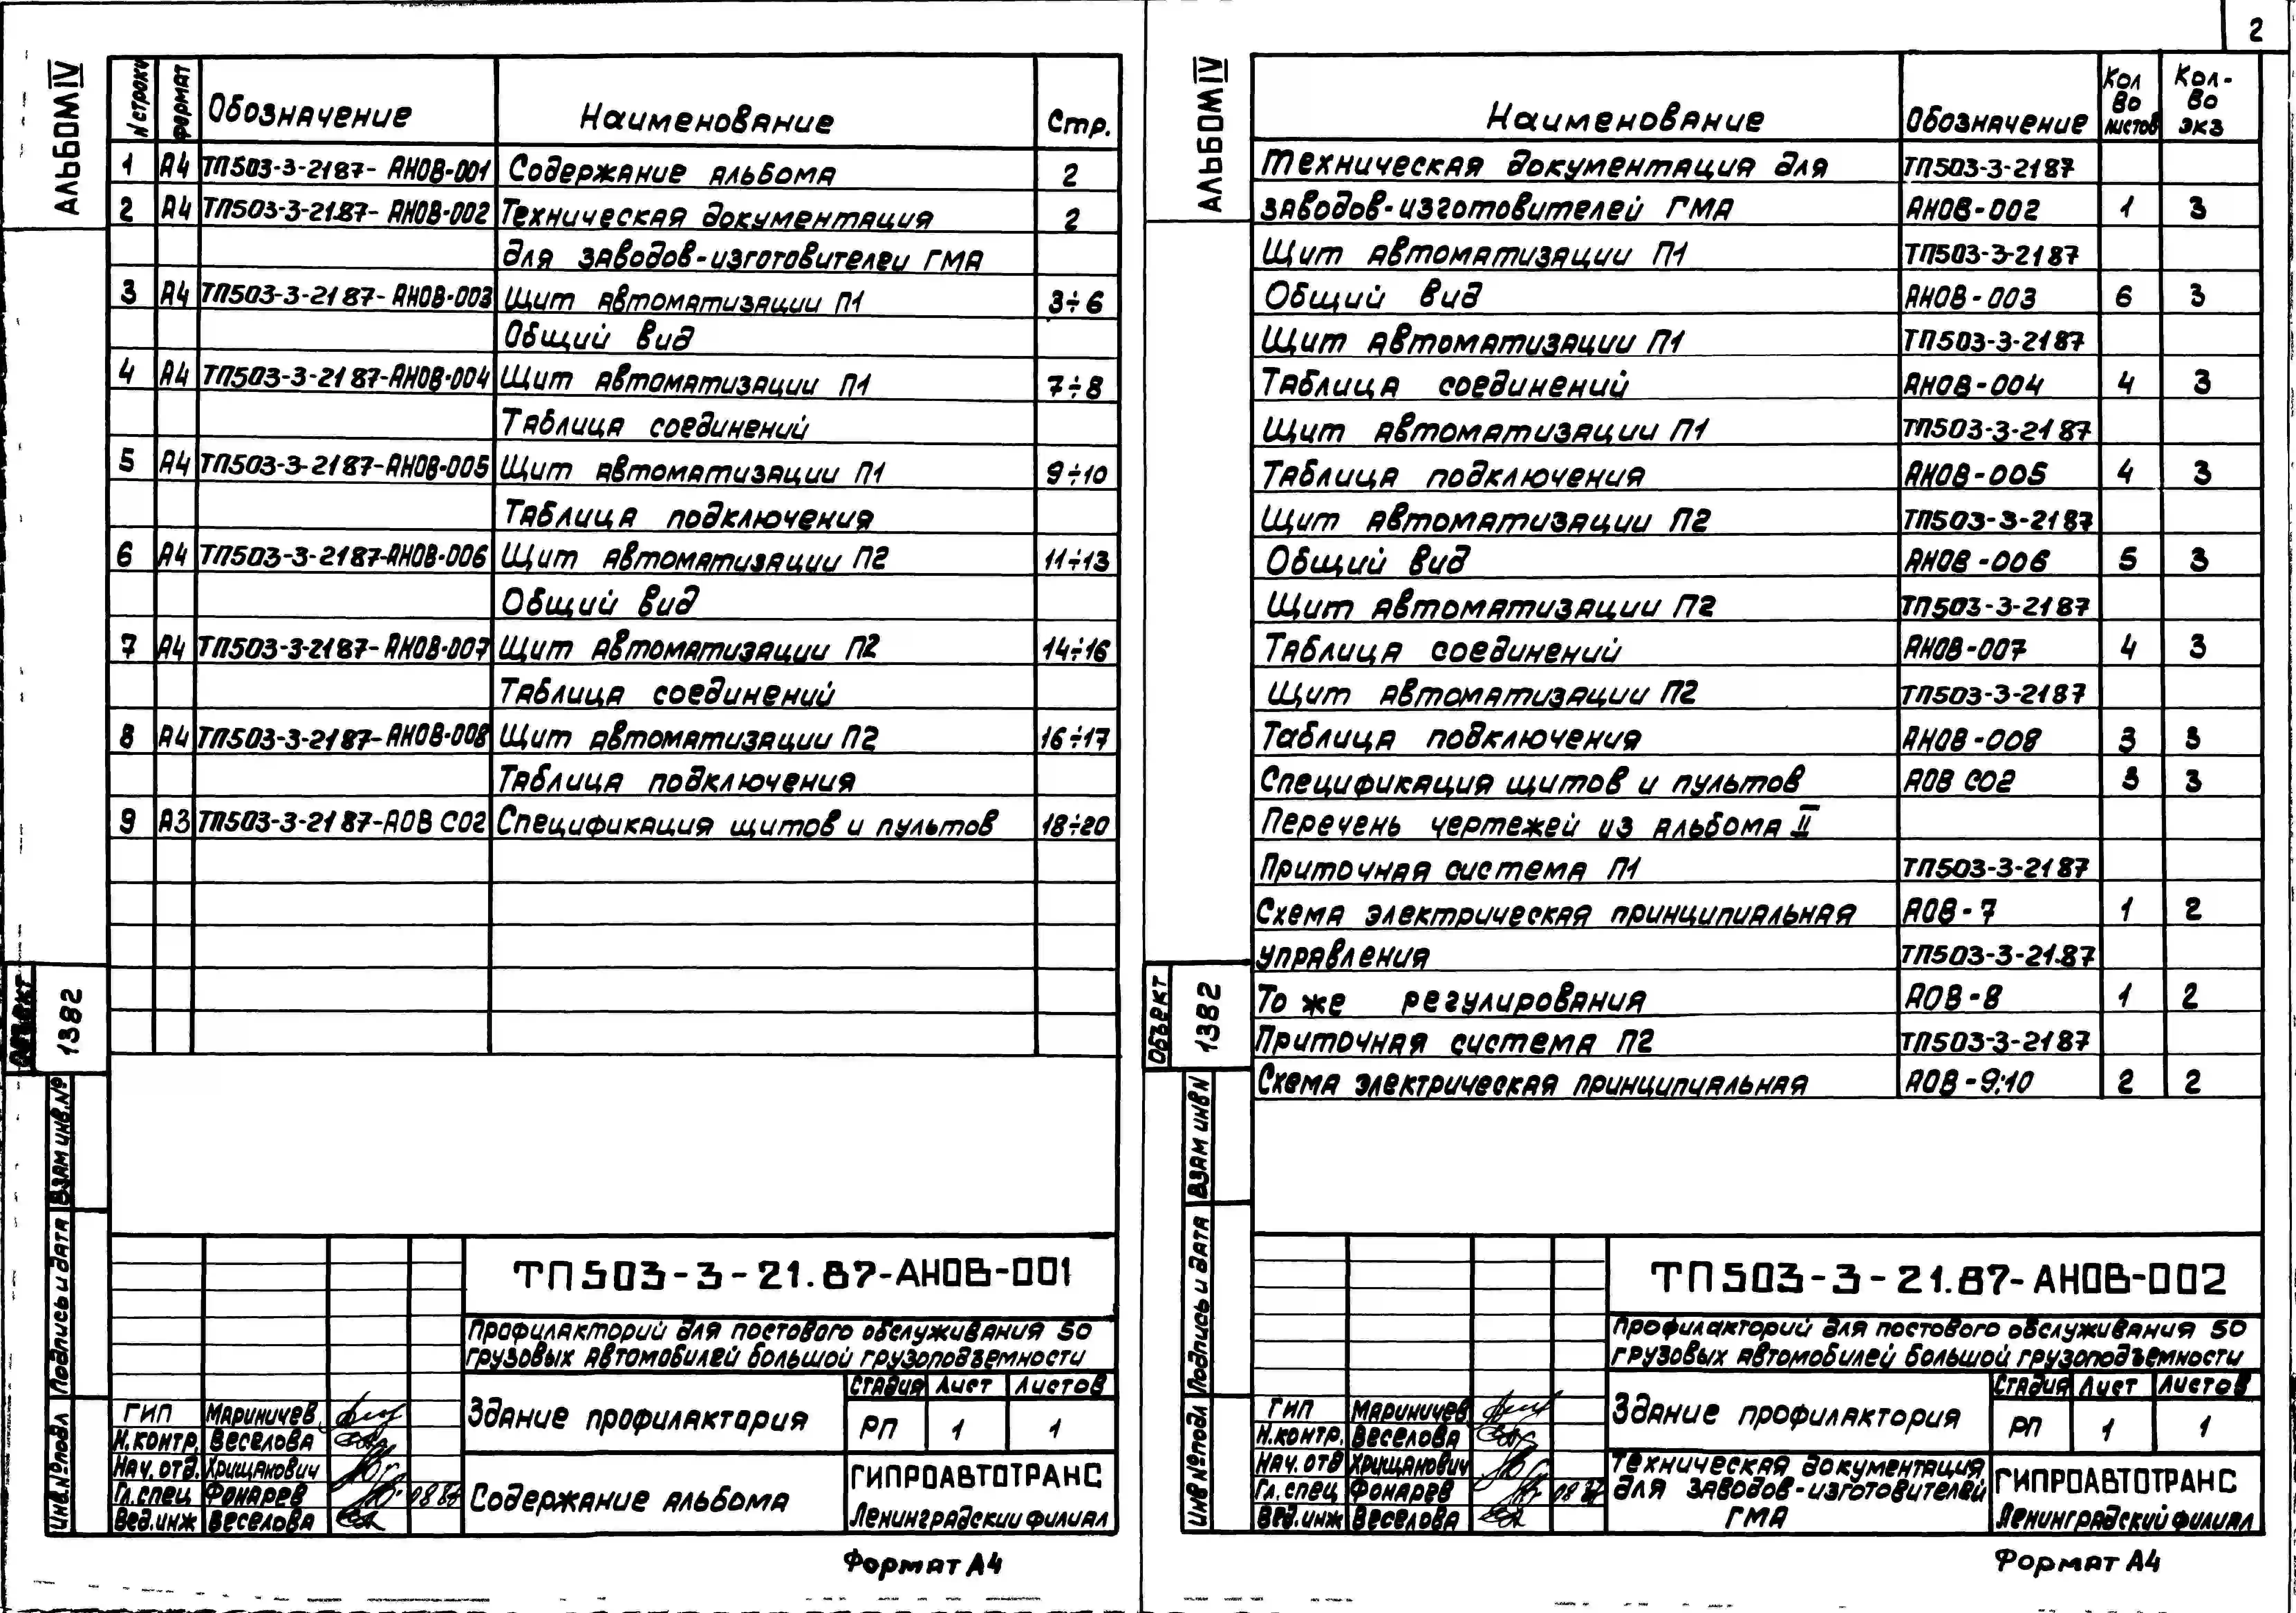 2
АЛЬБОМ IV
N строки Формат Обозначение Наименование Стр.
1 А4 ТП503-3-21 87- АНОВ-001 Содержание альбома 2
2 А4 ТП503-3-21.87- АНОВ-002 Техническая документация 2
для заводов-изготовителеи ГМА
3 А4 ТП503-3-21 87- АНОВ-003 Щит автоматизации П1 3÷6
Общий вид
4 А4 ТП503-3-21 87-АНОВ-004 Щит автоматизации П1 7÷8
Таблица соединений
5 А4 ТП503-3-21 87-АНОВ-005 Щит автоматизации П1 9÷10
Таблица подключения
6 А4 ТП503-3-21 87-АНОВ-006 Щит автоматизации П2 11÷13
Общий вид
7 А4 ТП503-3-21 87- АНОВ-007 Щит автоматизации П2 14÷16
Таблица соединений
8 А4 ТП503-3-21 87- АНОВ-008 Щит автоматизации П2 16÷17
Таблица подключения
9 А3 ТП503-3-21 87-АОВ СО2 Спецификация щитов и пультов 18÷20
ОБЪЕКТ 1382
Взам инв.№
Подпись и дата
Инв.№ подл
ТП 503-3-21.87-АНОВ-001
Профилакторий для постового обслуживания 50
грузовых автомобилей большой грузоподъемности
Здание профилактория
Стадия Лист Листов
РП 1 1
ГИП Мариничев
Н.контр. Веселова
Нач. отд. Хрищанович
Гл.спец Фонарев 08 87
Вед.инж Веселова
Содержание альбома
ГИПРОАВТОТРАНС
Ленинградскии филиал
Формат А4
АЛЬБОМ IV
Наименование Обозначение Кол во листов Кол-во экз
Техническая документация для ТП503-3-21 87
заводов-изготовителей ГМА АНОВ-002 1 3
Щит автоматизации П1 ТП503-3-21 87
Общий вид АНОВ-003 6 3
Щит автоматизации П1 ТП503-3-21 87
Таблица соединений АНОВ-004 4 3
Щит автоматизации П1 ТП503-3-21 87
Таблица подключения АНОВ-005 4 3
Щит автоматизации П2 ТП503-3-21 87
Общий вид АНОВ-006 5 3
Щит автоматизации П2 ТП503-3-21 87
Таблица соединений АНОВ-007 4 3
Щит автоматизации П2 ТП503-3-21 87
Таблица подключения АНОВ-008 3 3
Спецификация щитов и пультов АОВ СО2 3 3
Перечень чертежей из альбома II
Приточная система П1 ТП503-3-21 87
Схема электрическая принципиальная АОВ-7 1 2
управления ТП503-3-21.87
То же регулирования АОВ-8 1 2
Приточная система П2 ТП503-3-21 87
Схема электрическая принципиальная АОВ-9;10 2 2
ОБЪЕКТ 1382
Взам инв N
Подпись и дата
Инв №подл
ТП 503-3-21.87-АНОВ-002
Профилакторий для постового обслуживания 50
грузовых автомобилей большой грузоподъемности
Здание профилактория
Стадия Лист Листов
РП 1 1
ГИП Мариничев
Н.контр. Веселова
Нач. отд Хрищанович
Гл.спец Фонарев 08 87
Вед.инж Веселова
Техническая документация
для заводов-изготовителей
ГМА
ГИПРОАВТОТРАНС
Ленинградский филиал
Формат А4